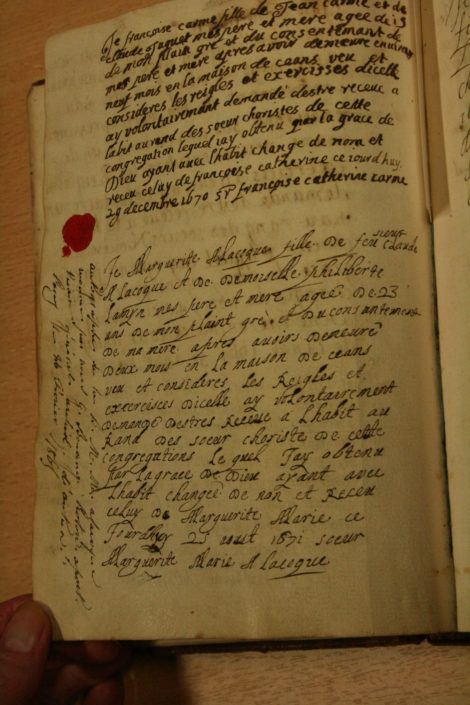 Je françoise carme fille de Jean carme et de
claude Juguet mes pere et mere agee de 15
de mon plain gré et du consentemant de
mes peré et mere apres avoir demeuré environ
neuf mois en la maison de ceans veu et
consideres les reigles et exercisses dicelle
ay volontairemant demandé destre receue a
labit au rend des soeur choristes de cette
congregation lequel jay obtenu par la grace de
Dieu ayant avec lhabit change de nom et
receu celuy de françoese catherine ce jourd huy
29 decembre 1670 Sr françoise catherine carme
Je Marguerite Alacoque fille De feu sieur Claude
Alacoque et De Demoiselle philiberte
lamyn mes pere et mere agee De 23
ans de mon plaint gré et Du consantemant
De ma mere apres avoirs Demeuré
Deux mois en la maison De ceans
veu et consideres les Reigles et
exercisses Dicelle ay volontairemant
Demandé Destres Receue a Lhabit au
Rand Des soeur choriste De cette
congregations Le quel Jay obtenu
par la grace De Dieu ayant avec
Lhabit changée De non et Receu
celuy De Marguerite Marie ce
Jourdhuy 25 août 1671 soeur
Marguerite Marie Alacoque